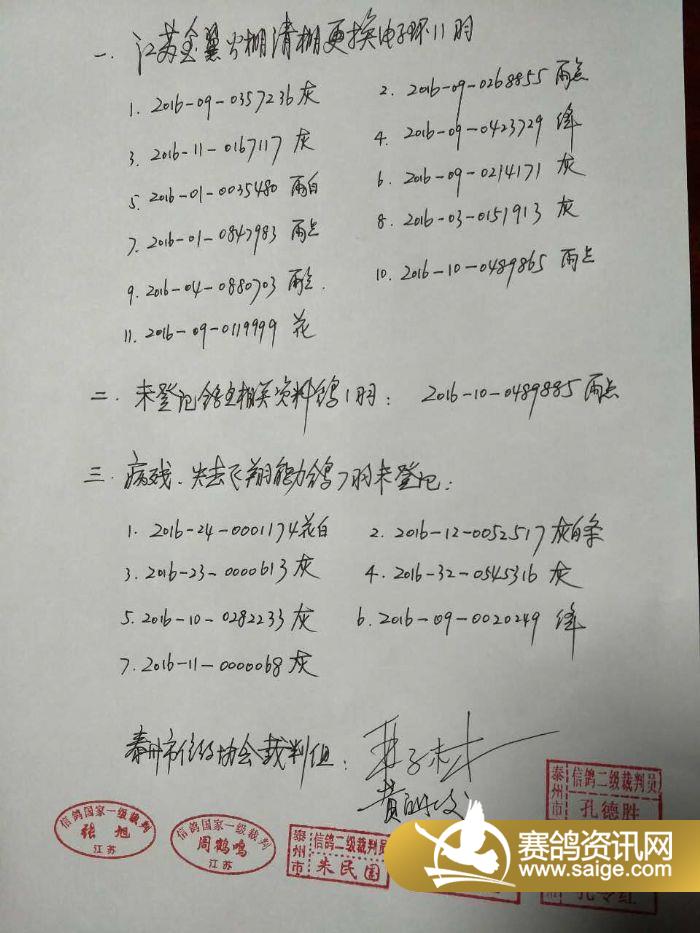 一. 江苏金翼公棚清棚更换电子环11羽
1. 2016-09-0357236 灰
2. 2016-09-0268855 雨点
3. 2016-11-0167117 灰
4. 2016-09-0423729 绛
5. 2016-01-0035480 雨白
6. 2016-09-0214171 灰
7. 2016-01-0847983 雨点
8. 2016-03-0151913 灰
9. 2016-04-0880703 雨点.
10. 2016-10-0489865 雨点
11. 2016-09-0119999 花
二. 未登记鸽主相关资料鸽1羽: 2016-10-0489885 雨点
三. 病残、失去飞翔能力鸽7羽未登记:
1. 2016-24-0001174 花白
2. 2016-12-0052517 灰白条
3. 2016-23-0000613 灰
4. 2016-32-0545316 灰
5. 2016-10-0282233 灰
6. 2016-09-0020249 绛
7. 2016-11-0000068 灰
泰州市信鸽协会裁判组:
信鸽国家一级裁判
张旭
江苏
信鸽国家一级裁判
周鹤鸣
江苏
泰州市
信鸽二级裁判员
朱民国
泰州市
信鸽二级裁判员
孔德胜
赛鸽资讯网
www.saige.com